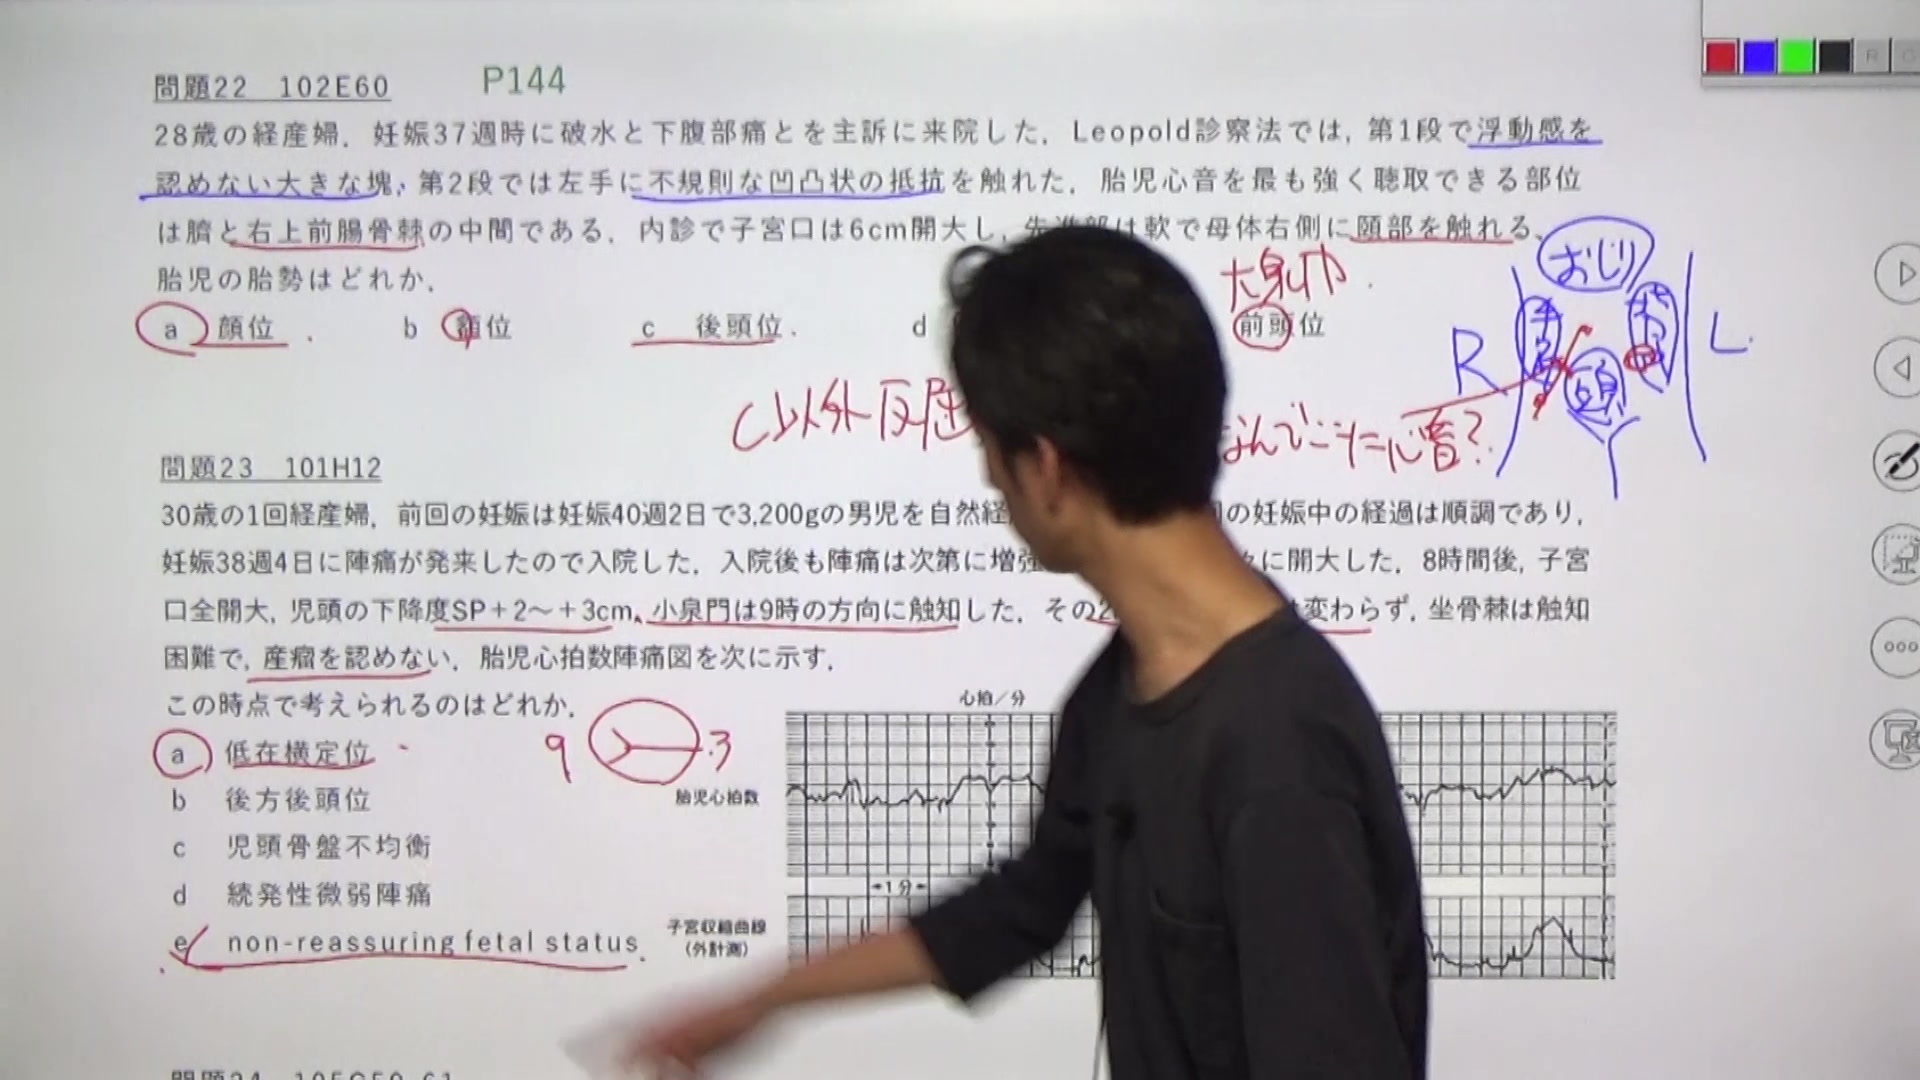 問題22 102E60 P144
28歳の経産婦．妊娠37週時に破水と下腹部痛とを主訴に来院した．Leopold診察法では，第1段で浮動感を
認めない大きな塊，第2段では左手に不規則な凹凸状の抵抗を触れた．胎児心音を最も強く聴取できる部位
は臍と右上前腸骨棘の中間である．内診で子宮口は6cm開大し，先進部は軟で母体右側に頤部を触れる．
胎児の胎勢はどれか．
a 顔位 b 額位 c 後頭位 d 前頭位
おじり
R
頭
L
C以外反屈
なんでここに心音?
問題23 101H12
30歳の1回経産婦．前回の妊娠は妊娠40週2日で3,200gの男児を自然経 の妊娠中の経過は順調であり，
妊娠38週4日に陣痛が発来したので入院した．入院後も陣痛は次第に増強 に開大した．8時間後，子宮
口全開大，児頭の下降度SP＋2～＋3cm，小泉門は9時の方向に触知した．その2 は変わらず，坐骨棘は触知
困難で，産瘤を認めない．胎児心拍数陣痛図を次に示す．
この時点で考えられるのはどれか．
a 低在横定位
b 後方後頭位
c 児頭骨盤不均衡
d 続発性微弱陣痛
e non-reassuring fetal status
9 3
心拍／分
胎児心拍数
1分
子宮収縮曲線
（外計測）